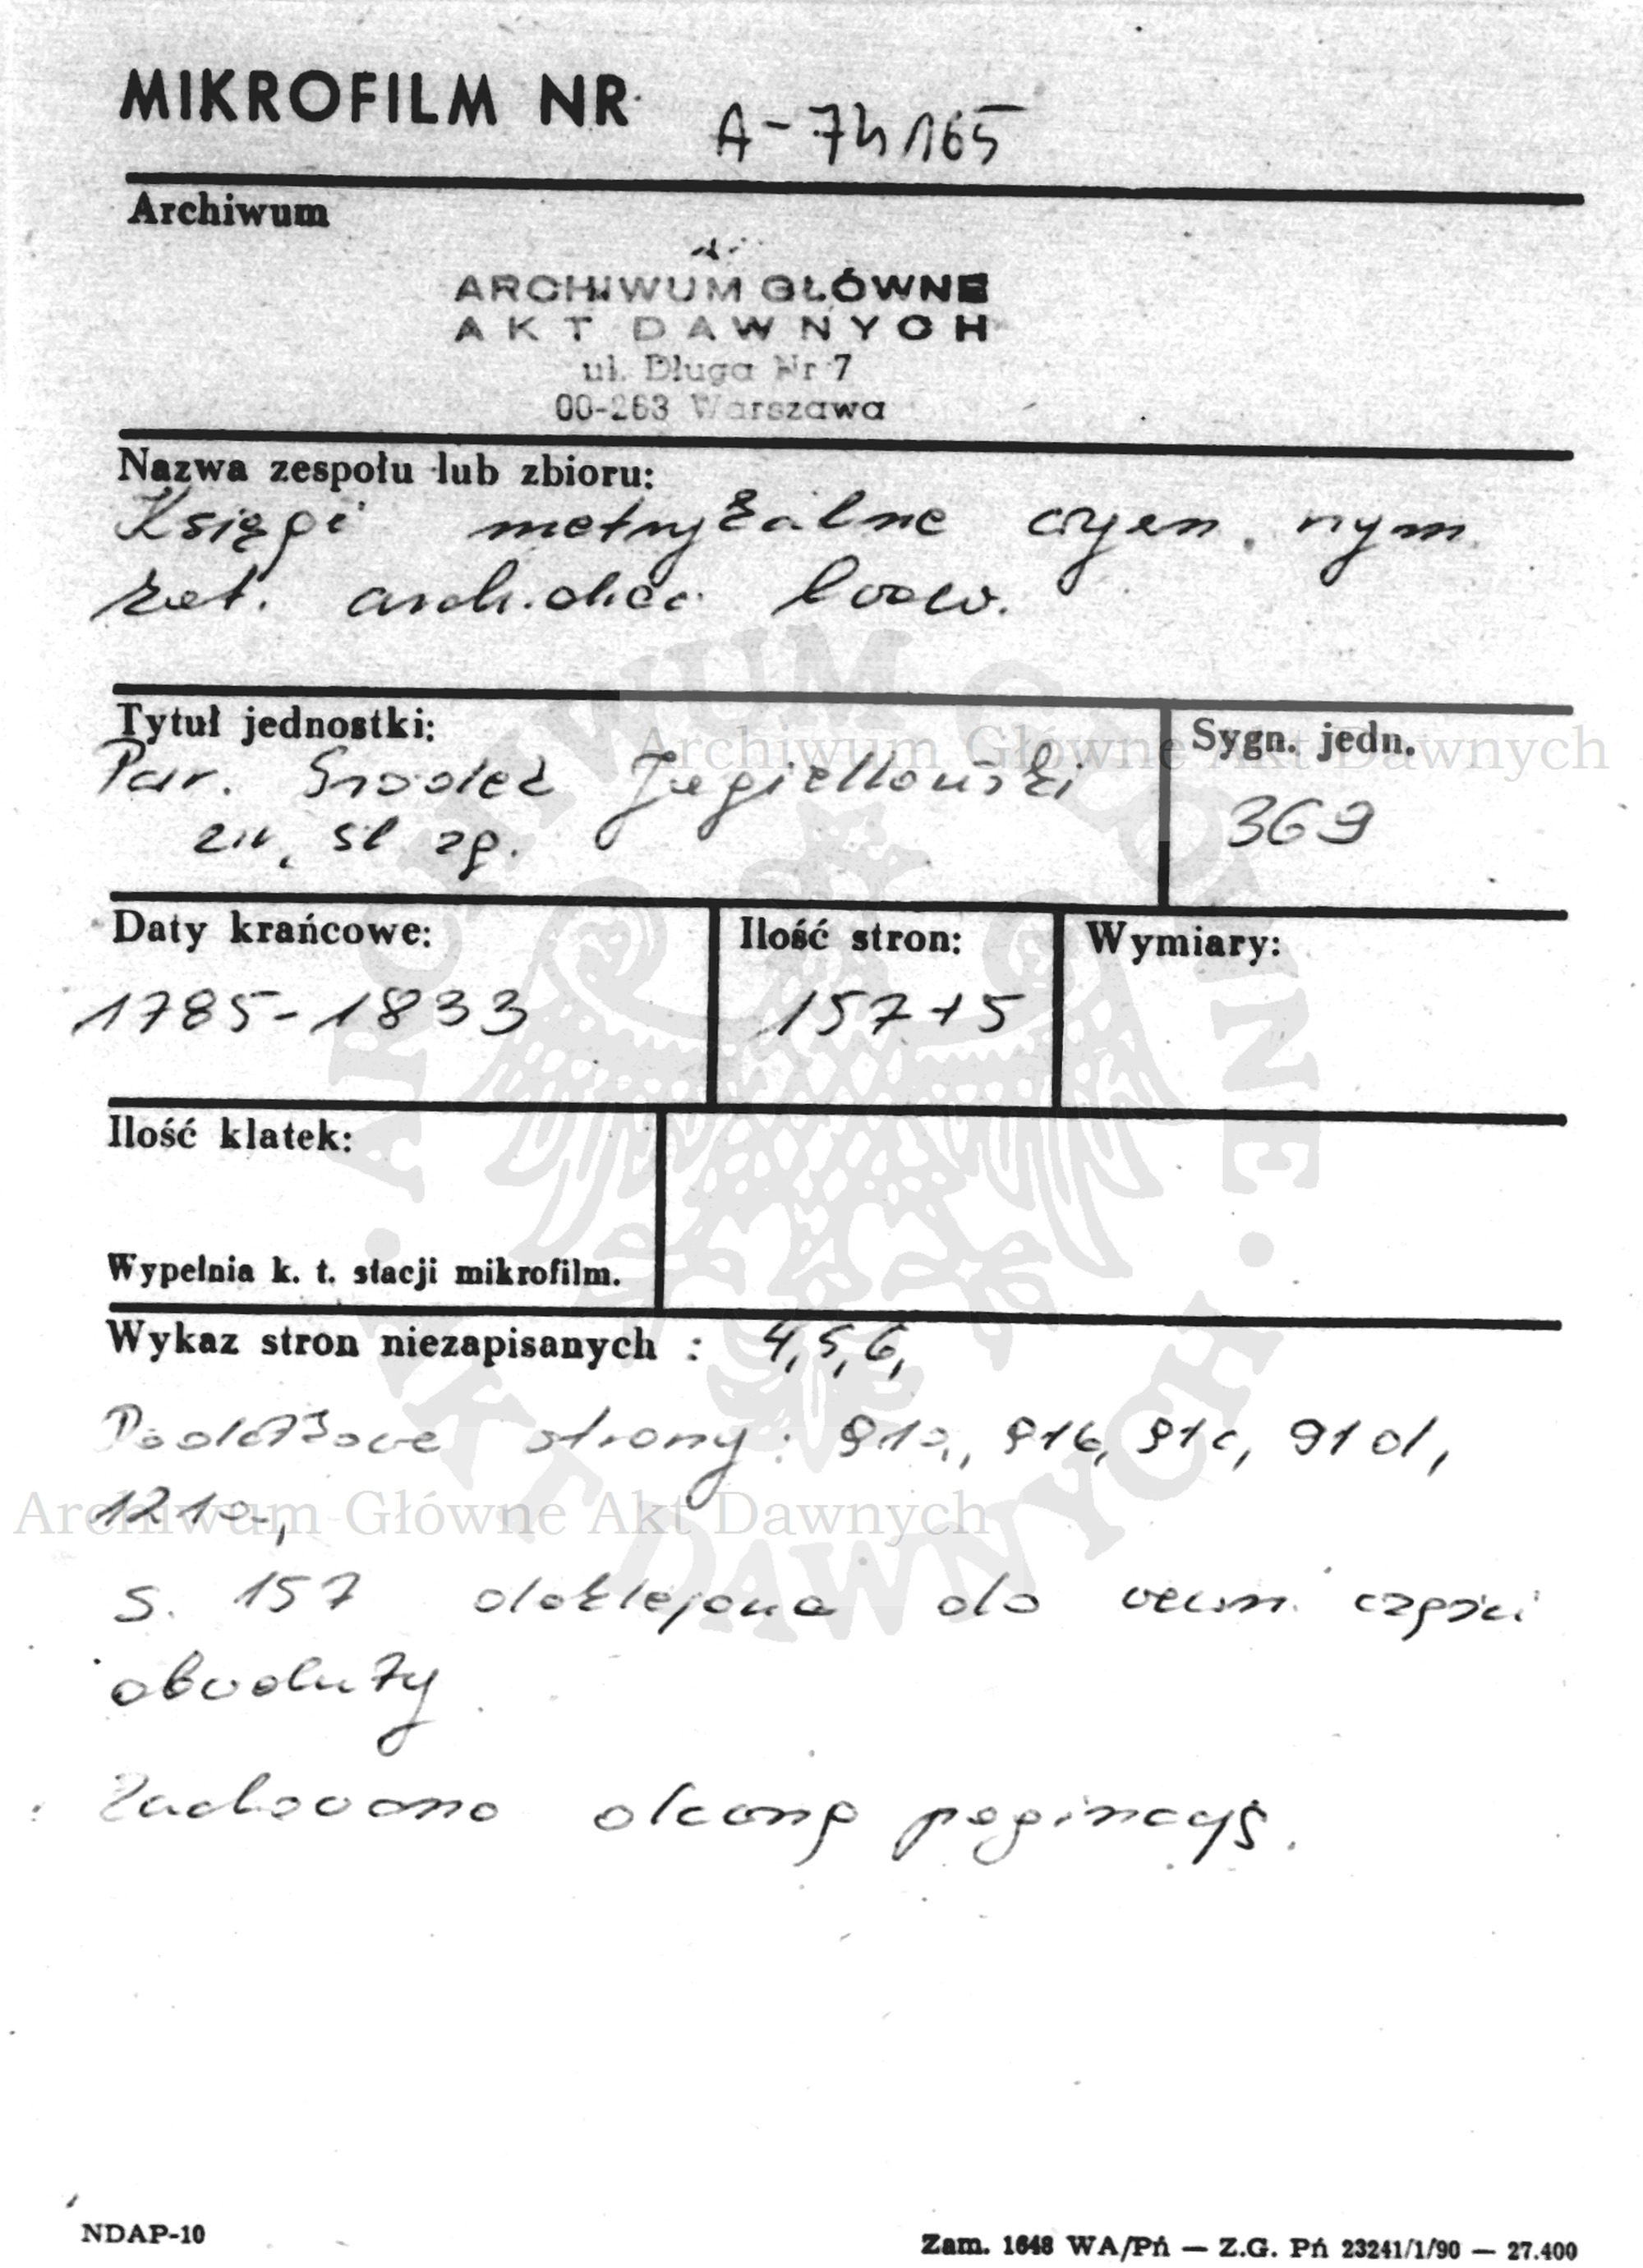 MIKROFILM NR A-74165
Archiwum
ARCHIWUM GŁÓWNE
AKT DAWNYCH
ul. Długa Nr 7
00-263 Warszawa
Nazwa zespołu lub zbioru:
Księgi metrykalne rzym.
kat. arch.diec. lwow.
Tytuł jednostki:
Par. Gródek Jagielloński
ur, śl zg.
Sygn. jedn.
369
Archiwum Główne Akt Dawnych
Daty krańcowe:
1785-1833
Ilość stron:
157+5
Wymiary:
Ilość klatek:
Wypełnia k. t. stacji mikrofilm.
ARCHIWUM GŁÓWNE · AKT DAWNYCH ·
Wykaz stron niezapisanych : 4,5,6,
Dodatkowe strony: 91a, 91b, 91c, 91d,
121a,
Archiwum Główne Akt Dawnych
s. 157 doklejona do części
obwoluty
Zachowano dawną paginację.
NDAP-10
Zam. 1648 WA/Pń — Z.G. Pń 23241/1/90 — 27.400